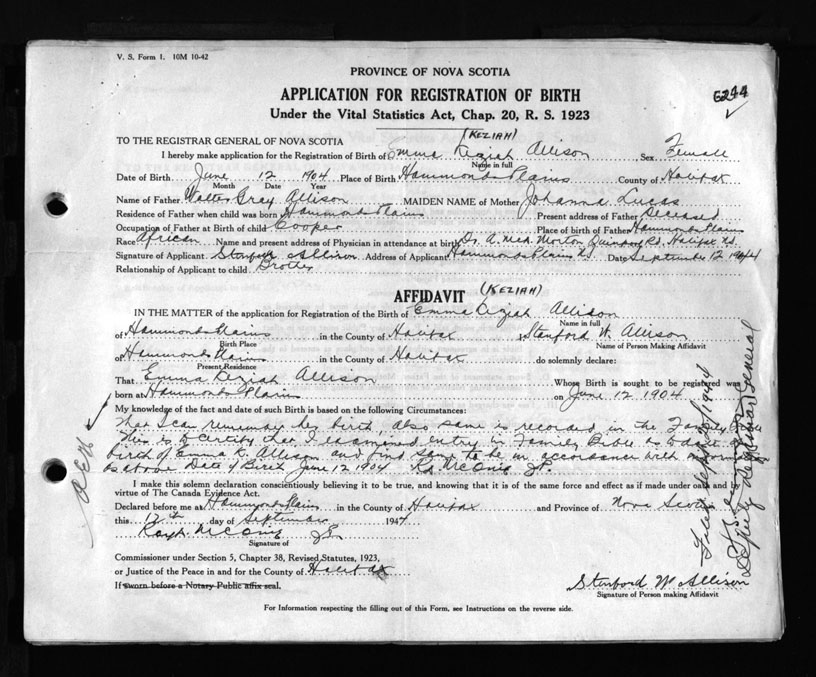 V. S. Form 1. 10M 10-42
PROVINCE OF NOVA SCOTIA
APPLICATION FOR REGISTRATION OF BIRTH
6244
Under the Vital Statistics Act, Chap. 20, R. S. 1923
(KEZIAH)
TO THE REGISTRAR GENERAL OF NOVA SCOTIA
I hereby make application for the Registration of Birth of Emma Keziah Allison Sex Female
Name in full
Date of Birth June 12 1904 Place of Birth Hammonds Plains County of Halifax
Month Date Year
Name of Father Walter Gray Allison MAIDEN NAME of Mother Johanna Lucas
Residence of Father when child was born Hammonds Plains Present address of Father Deceased
Occupation of Father at Birth of child Cooper Place of birth of Father Hammonds Plains
Race African Name and present address of Physician in attendance at birth Dr. A. Morton Quinpool Rd. Halifax N.S.
Signature of Applicant Stanford Allison Address of Applicant Hammonds Plains N.S. Date September 12 1944
Relationship of Applicant to child Brother
AFFIDAVIT (KEZIAH)
IN THE MATTER of the application for Registration of the Birth of Emma Keziah Allison
Name in full
of Hammonds Plains in the County of Halifax I, Stanford W. Allison
Birth Place Name of Person Making Affidavit
of Hammonds Plains in the County of Halifax do solemnly declare:
Present Residence
That Emma Keziah Allison Whose Birth is sought to be registered was
born at Hammonds Plains on June 12 1904
My knowledge of the fact and date of such Birth is based on the following Circumstances:
That I can remember her birth, also same is recorded in the Family Bible
This is to certify that I examined entry in Family Bible as to date of
birth of Emma K. Allison and find same to be in accordance with
as above Date of Birth June 12 1904 J.P.
I make this solemn declaration conscientiously believing it to be true, and knowing that it is of the same force and effect as if made under oath and by
virtue of The Canada Evidence Act.
Declared before me at Hammonds Plains in the County of Halifax and Province of Nova Scotia
this 12th day of September 1944
Signature of
Commissioner under Section 5, Chapter 38, Revised Statutes, 1923,
or Justice of the Peace in and for the County of Halifax
If sworn before a Notary Public affix seal.
Stanford W Allison
Signature of Person making Affidavit
For Information respecting the filling out of this Form, see Instructions on the reverse side.
Deputy Registrar General